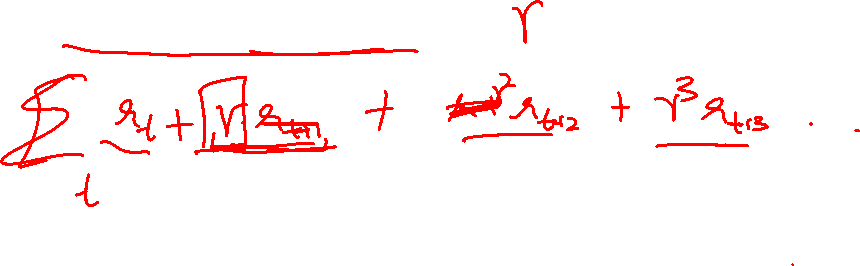 γ
∑ r_t + γ r_{t+1} + γ² r_{t+2} + γ³ r_{t+3} . .
t